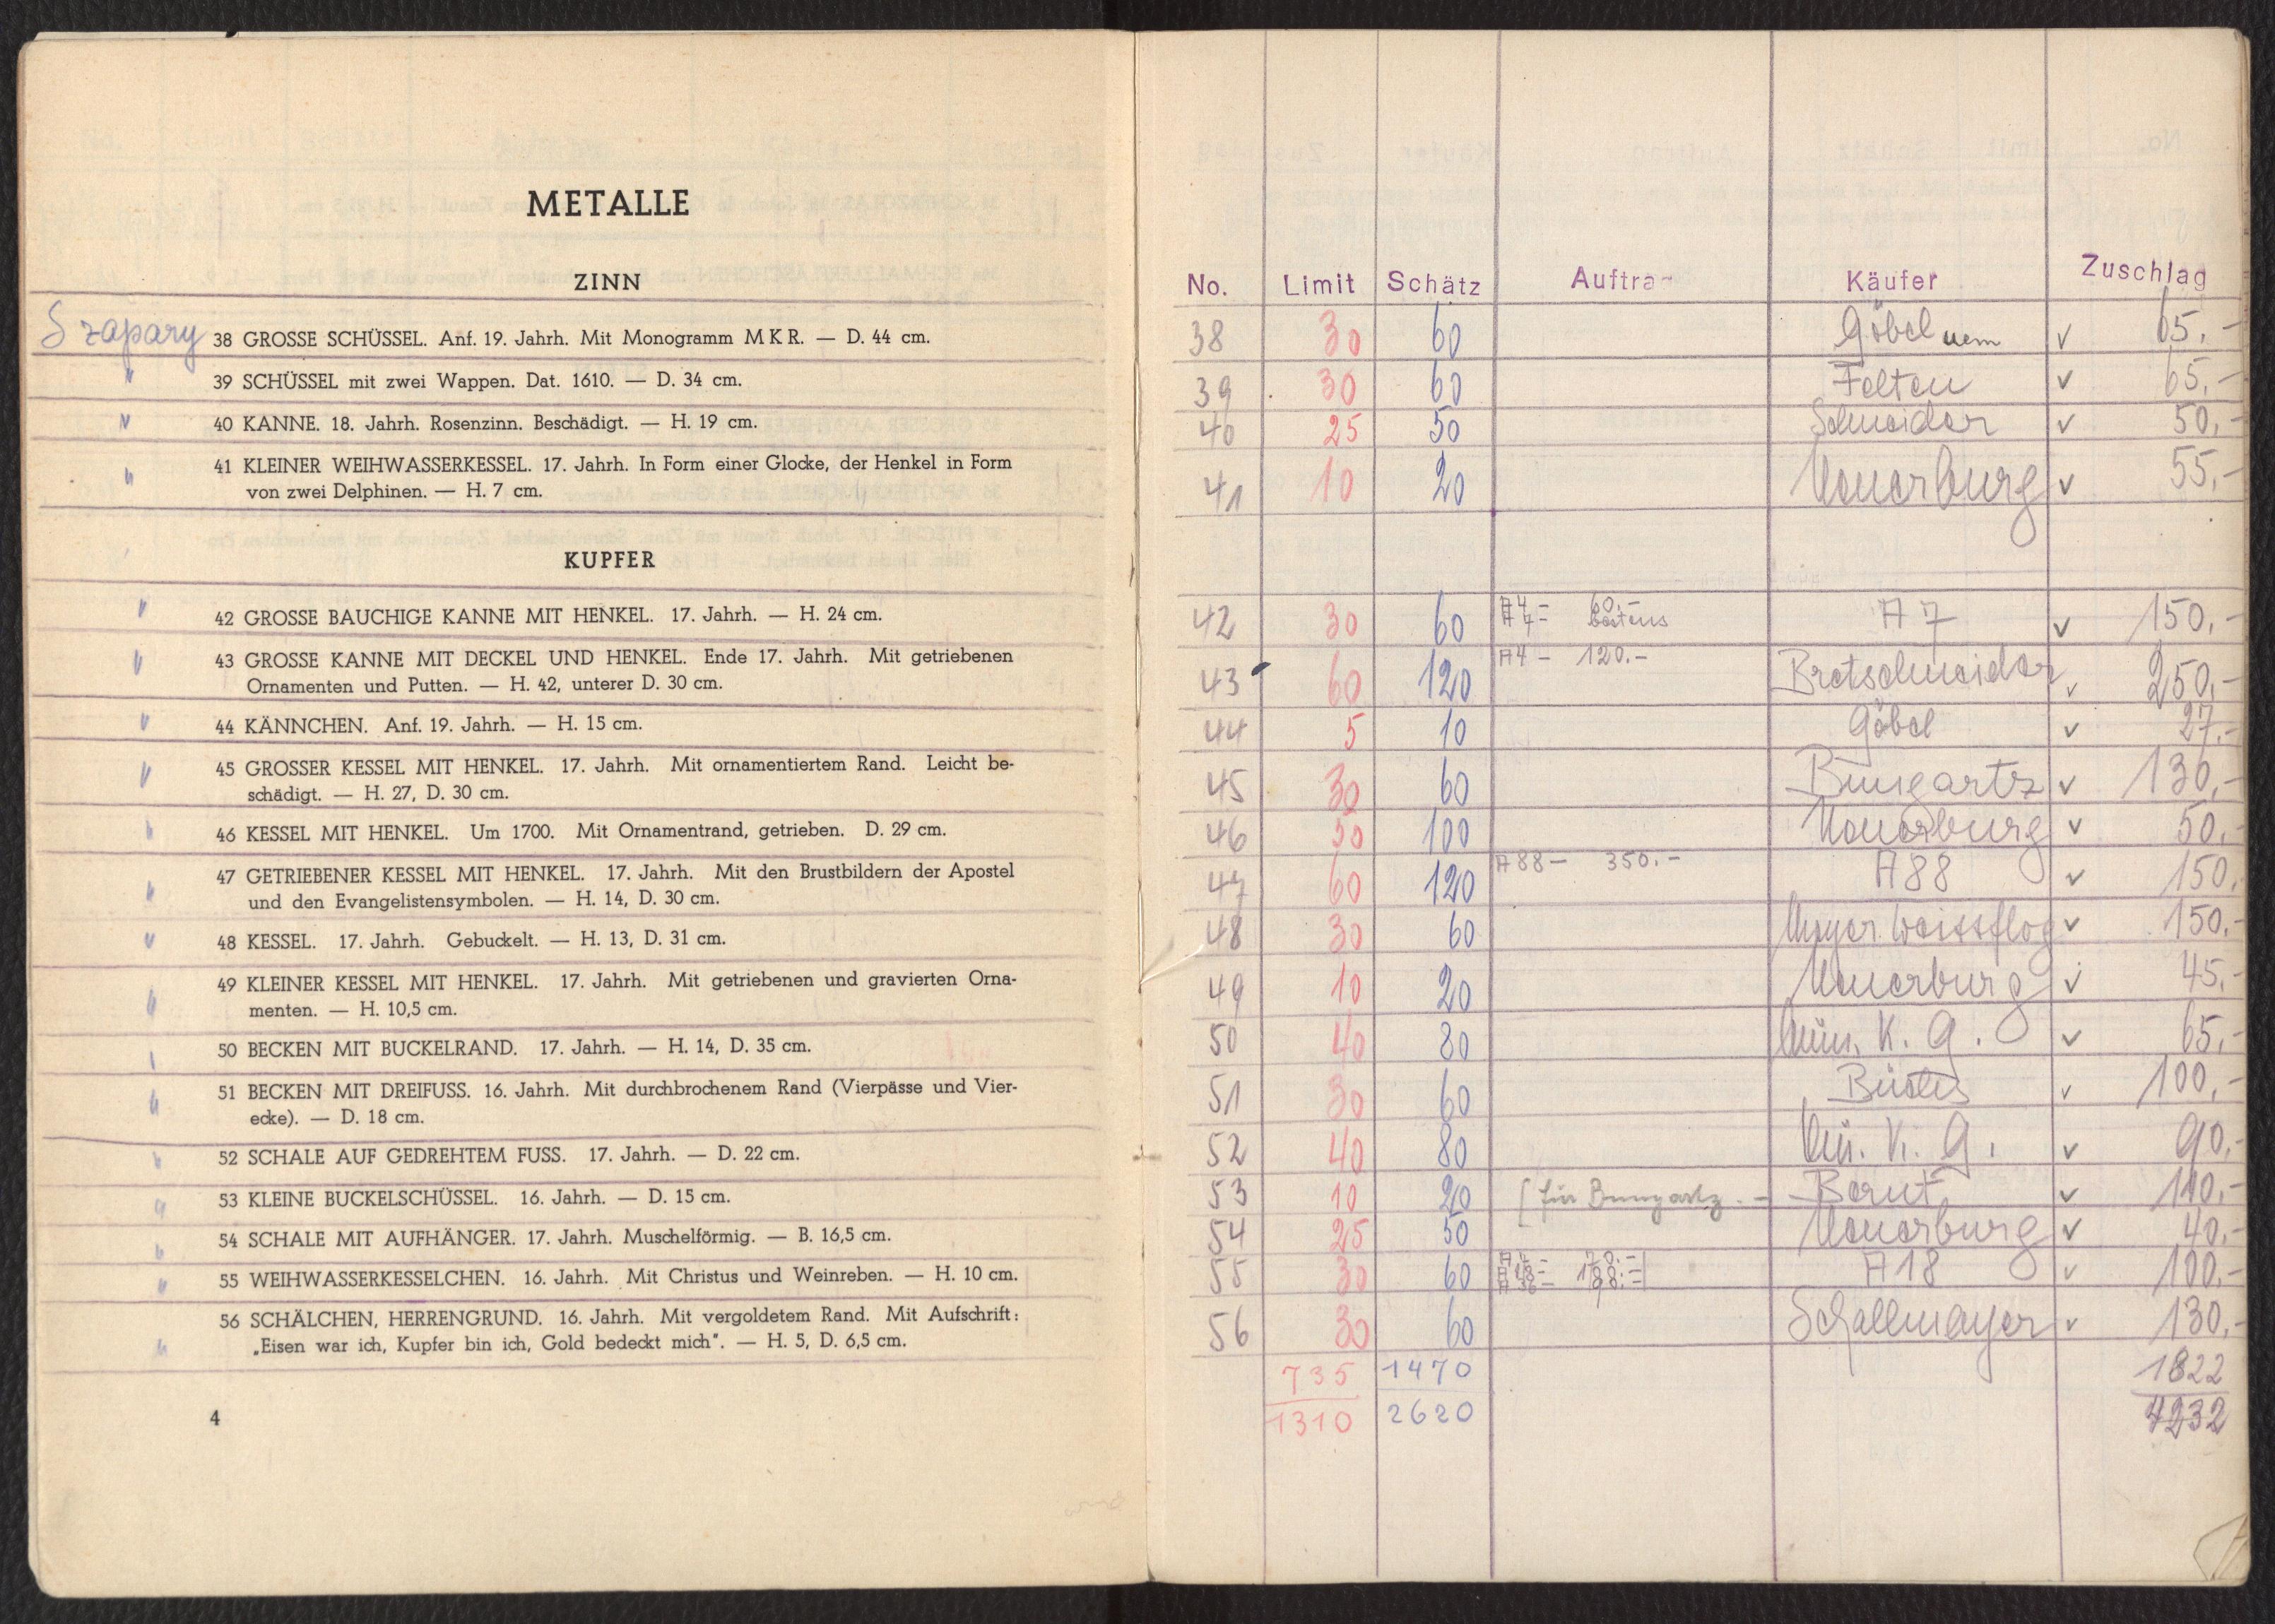 METALLE
ZINN
Szapary 38 GROSSE SCHÜSSEL. Anf. 19. Jahrh. Mit Monogramm M K R. — D. 44 cm.
" 39 SCHÜSSEL mit zwei Wappen. Dat. 1610. — D. 34 cm.
" 40 KANNE. 18. Jahrh. Rosenzinn. Beschädigt. — H. 19 cm.
" 41 KLEINER WEIHWASSERKESSEL. 17. Jahrh. In Form einer Glocke, der Henkel in Form
von zwei Delphinen. — H. 7 cm.
KUPFER
" 42 GROSSE BAUCHIGE KANNE MIT HENKEL. 17. Jahrh. — H. 24 cm.
" 43 GROSSE KANNE MIT DECKEL UND HENKEL. Ende 17. Jahrh. Mit getriebenen
Ornamenten und Putten. — H. 42, unterer D. 30 cm.
" 44 KÄNNCHEN. Anf. 19. Jahrh. — H. 15 cm.
" 45 GROSSER KESSEL MIT HENKEL. 17. Jahrh. Mit ornamentiertem Rand. Leicht be-
schädigt. — H. 27, D. 30 cm.
" 46 KESSEL MIT HENKEL. Um 1700. Mit Ornamentrand, getrieben. D. 29 cm.
" 47 GETRIEBENER KESSEL MIT HENKEL. 17. Jahrh. Mit den Brustbildern der Apostel
und den Evangelistensymbolen. — H. 14, D. 30 cm.
" 48 KESSEL. 17. Jahrh. Gebuckelt. — H. 13, D. 31 cm.
" 49 KLEINER KESSEL MIT HENKEL. 17. Jahrh. Mit getriebenen und gravierten Orna-
menten. — H. 10,5 cm.
" 50 BECKEN MIT BUCKELRAND. 17. Jahrh. — H. 14, D. 35 cm.
" 51 BECKEN MIT DREIFUSS. 16. Jahrh. Mit durchbrochenem Rand (Vierpässe und Vier-
ecke). — D. 18 cm.
" 52 SCHALE AUF GEDREHTEM FUSS. 17. Jahrh. — D. 22 cm.
" 53 KLEINE BUCKELSCHÜSSEL. 16. Jahrh. — D. 15 cm.
" 54 SCHALE MIT AUFHÄNGER. 17. Jahrh. Muschelförmig. — B. 16,5 cm.
" 55 WEIHWASSERKESSELCHEN. 16. Jahrh. Mit Christus und Weinreben. — H. 10 cm.
" 56 SCHÄLCHEN, HERRENGRUND. 16. Jahrh. Mit vergoldetem Rand. Mit Aufschrift:
„Eisen war ich, Kupfer bin ich, Gold bedeckt mich". — H. 5, D. 6,5 cm.
4
No. Limit Schätz Auftra Käufer Zuschlag
38 30 60 Göbel v 65.-
39 30 60 Felten v 65.-
40 25 50 Schneider v 50,-
41 10 20 Neuerburg v 55,-
42 30 60 A4- 60.- A7- bestens A7 v 150,-
43 60 120 A4- 120.- Bretschneider v 250,-
44 5 10 Göbel v 27.-
45 30 60 Bumgartz v 130,-
46 50 100 Neuerburg v 50,-
47 60 120 A88- 350.- A88 v 150,
48 30 60 Meyer Weissflog v 150,-
49 10 20 Neuerburg v 45,-
50 40 80 K. G. v 65,-
51 30 60 v 100,-
52 40 80 K. G. v 90,-
53 10 20 (für Bumgartz.- Bernt v 110,-
54 25 50 Neuerburg v 40,-
55 30 60 A18 v 100.-
56 30 60 Schallmayer v 130,-
735 1470 1822
1310 2620 4232